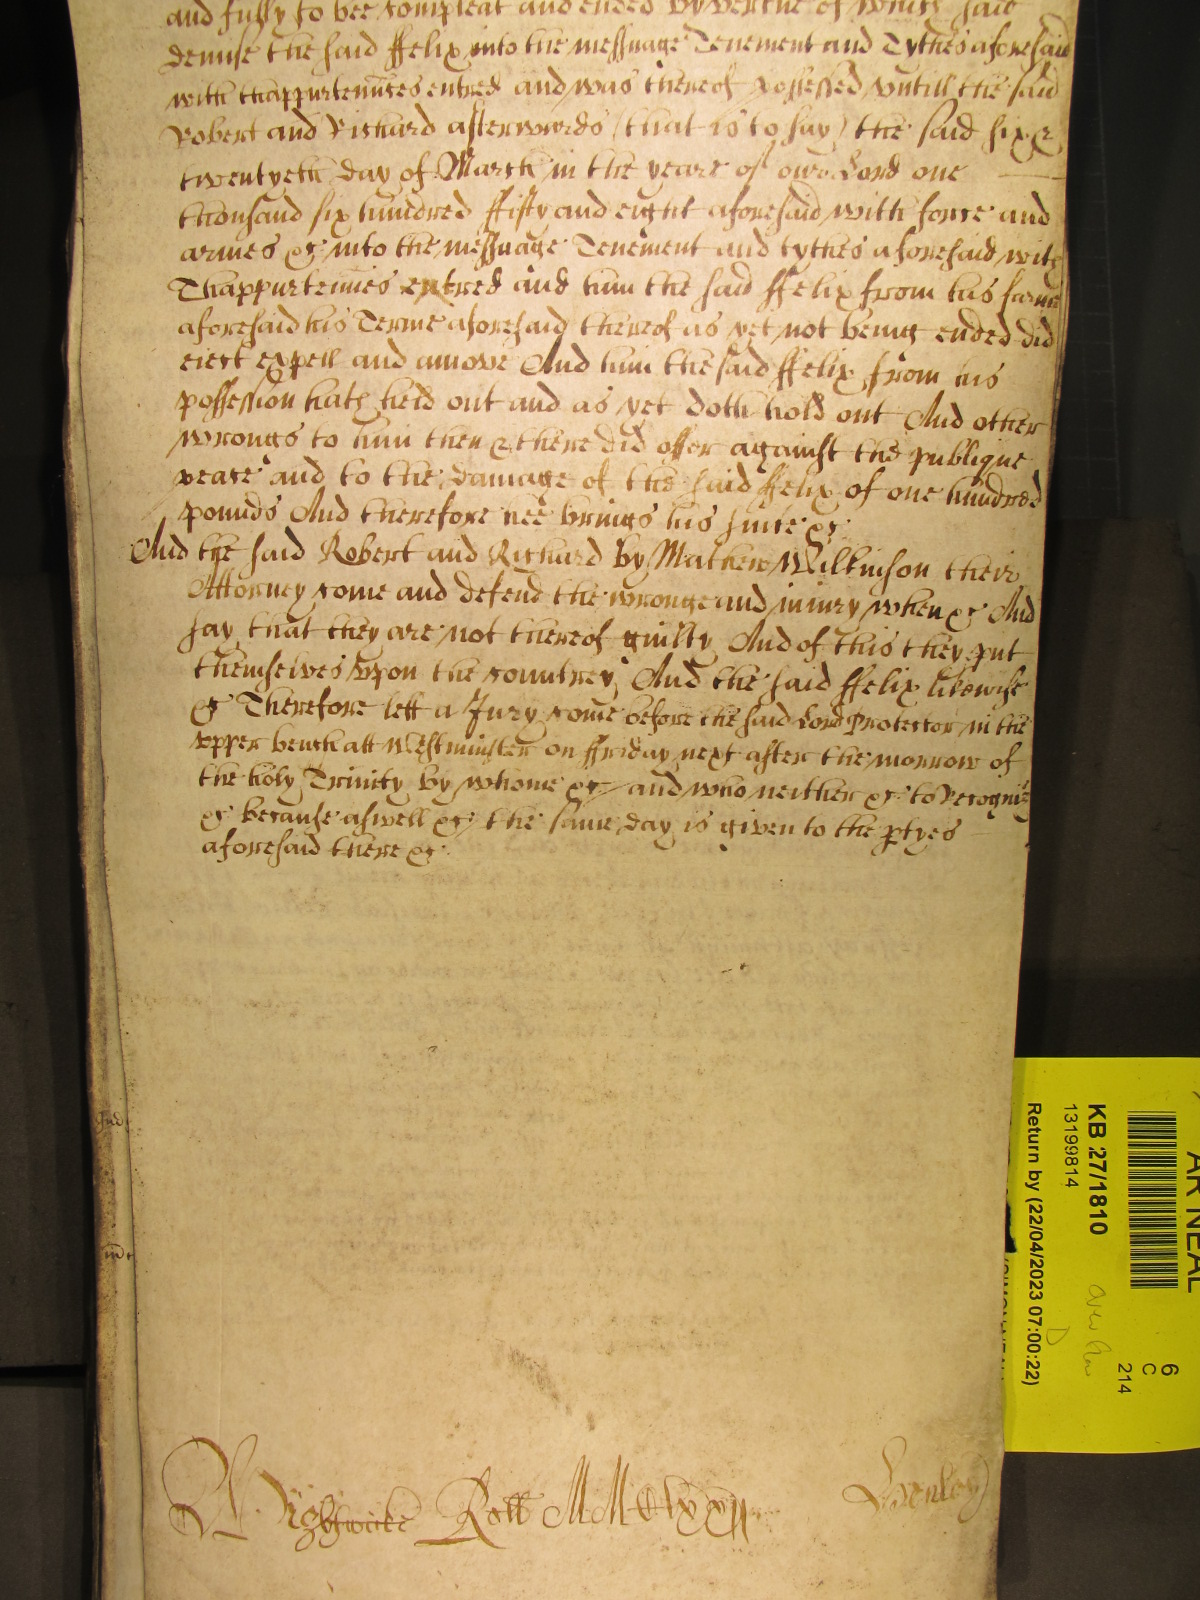 and fully to bee compleat and ended By vertue of which said
demise the said ffelix into the messuage Tenement and Tythes aforesaid
with thappurtenn̄ces entred and was thereof possessed vntill the said
Robert and Richard afterwards (that is to say) the said six &
twentyeth day of March in the yeare of our Lord one
thousand six hundred ffifty and eight aforesaid with force and
armes &c into the messuage Tenement and tythes aforesaid with
Thappurtenn̄ces entred and him the said ffelix from his farme
aforesaid his Terme aforesaid thereof as yet not being ended did
eiect expell and amove And him the said ffelix from his
possession hath held out and as yet doth hold out And other
wrongs to him then & there did offer against the publique
peace and to the damage of the said ffelix of one hundred
pounds And therefore hee brings his suite &c
And the said Robert and Richard by Mathew Wilkinson their
Attorney come and defend the wronge and iniury when &c And
say that they are not thereof guilty And of this they put
themselves vpon the countrey And the said ffelix likewise
&c Therefore lett a Jury come before the said Lord Protector in the
vpper bench att Westminster on ffriday next after the morrow of
the holy Trinity by whome &c and who neither &c to Recogniz
&c because aswell &c the same day is given to the ptyes
aforesaid there &c
Roll MMClxxii
Henley
AR NEAL
KB 27/1810
13199814
Return by (22/04/2023 07:00:22)
6
C
214